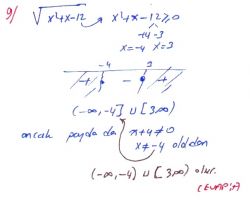 9) √x²+x-12 → x²+x-12≥0
+4 -3
x=-4 x=3
-4 3
+ - +
(-∞,-4] ∪ [3,∞)
ancak payda da x+4≠0
x≠-4 olduğundan
(-∞,-4) ∪ [3,∞) olur.
(CEVAP: